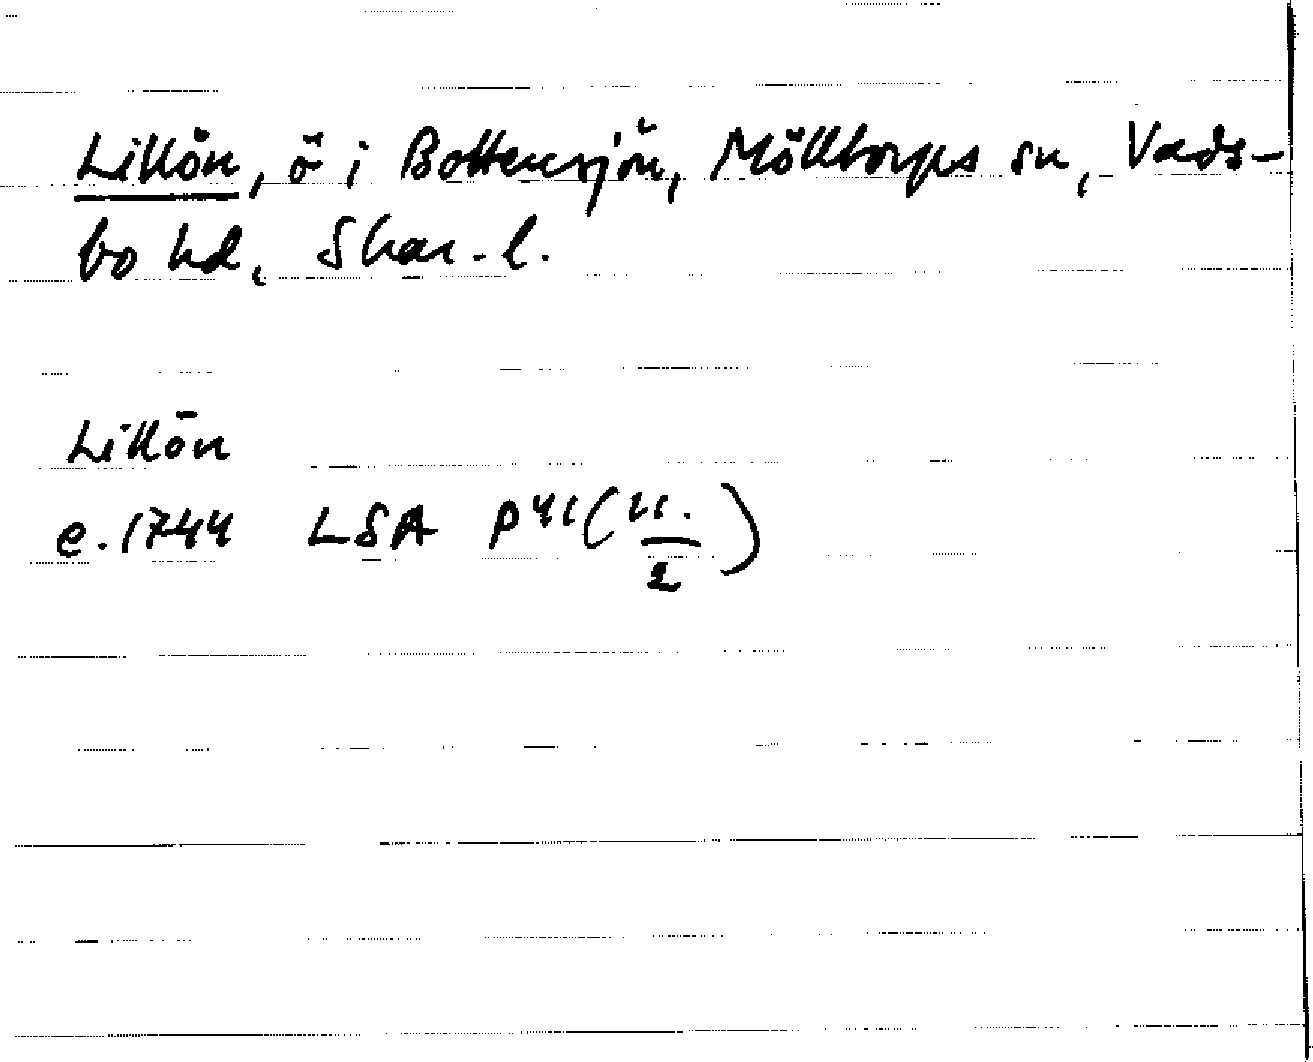 Lillön, ö i Bottensjön, Mölltorps sn, Vads-
bo hd, Skar. l.
Lillön
e. 1744 LSA P41(11./2)